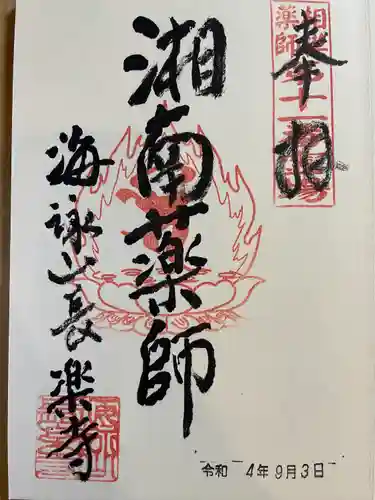 奉拝
湘南薬師
海詠山長楽寺
令和 4年 9月 3日